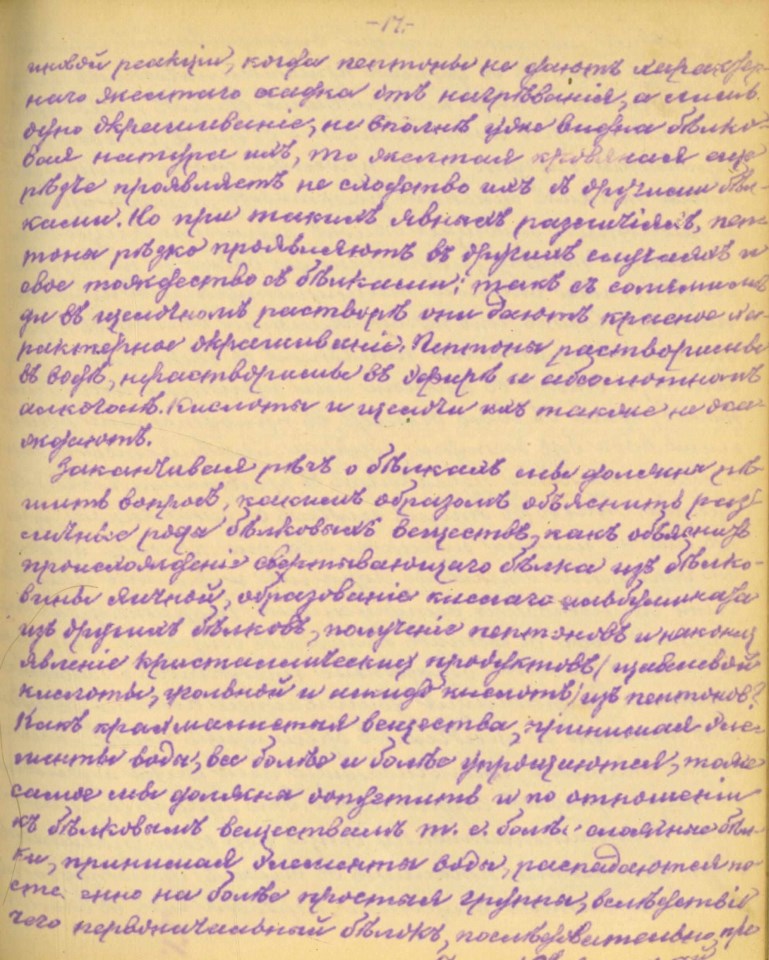 -17.-
новой реакціи, когда пептоны не даютъ характер-
наго желтаго осадка отъ нагрѣванія, а лишь
одно окрашиваніе, не вполнѣ уже видна бѣлко-
вая натура ихъ, то желтая кровяная еще
рѣзче проявляетъ не сходство ихъ съ другими бѣл-
ками. Но при такихъ явныхъ различіяхъ, пеп-
тона рѣзко проявляютъ въ другихъ случаяхъ и
свое тождество съ бѣлками; такъ съ
въ щелочномъ растворѣ они даютъ красное ха-
рактерное окрашиваніе. Пептоны растворимы
въ водѣ, нерастворимы въ эфирѣ и абсолютномъ
алкоголѣ. Кислоты и щелочи ихъ также не оса-
ждаютъ.
Заканчивая рѣчь о бѣлкахъ мы должны рѣ-
шить вопросъ, какимъ образомъ объяснить раз-
личные рода бѣлковыхъ веществъ, какъ объяснить
происхожденіе свертывающаго бѣлка изъ бѣлко-
вины яичной, образованіе кислаго альбумината
изъ другихъ бѣлковъ, полученіе пептоновъ и наконец
явленіе кристаллическихъ продуктовъ (щавелевой
кислоты, угольной и амидо кислотъ) изъ пептоновъ?
Какъ крахмалистыя вещества, принимая эле-
менты воды, все болѣе и болѣе упрощаются, тоже
самое мы должны допустить и по отношенію
къ бѣлковымъ веществамъ т. е. болѣе сложные бѣл-
ки, принимая элементы воды, распадаются по
степенно на болѣе простыя группы, вслѣдствіе
чего первоначальный бѣлокъ, послѣдовательно, пре